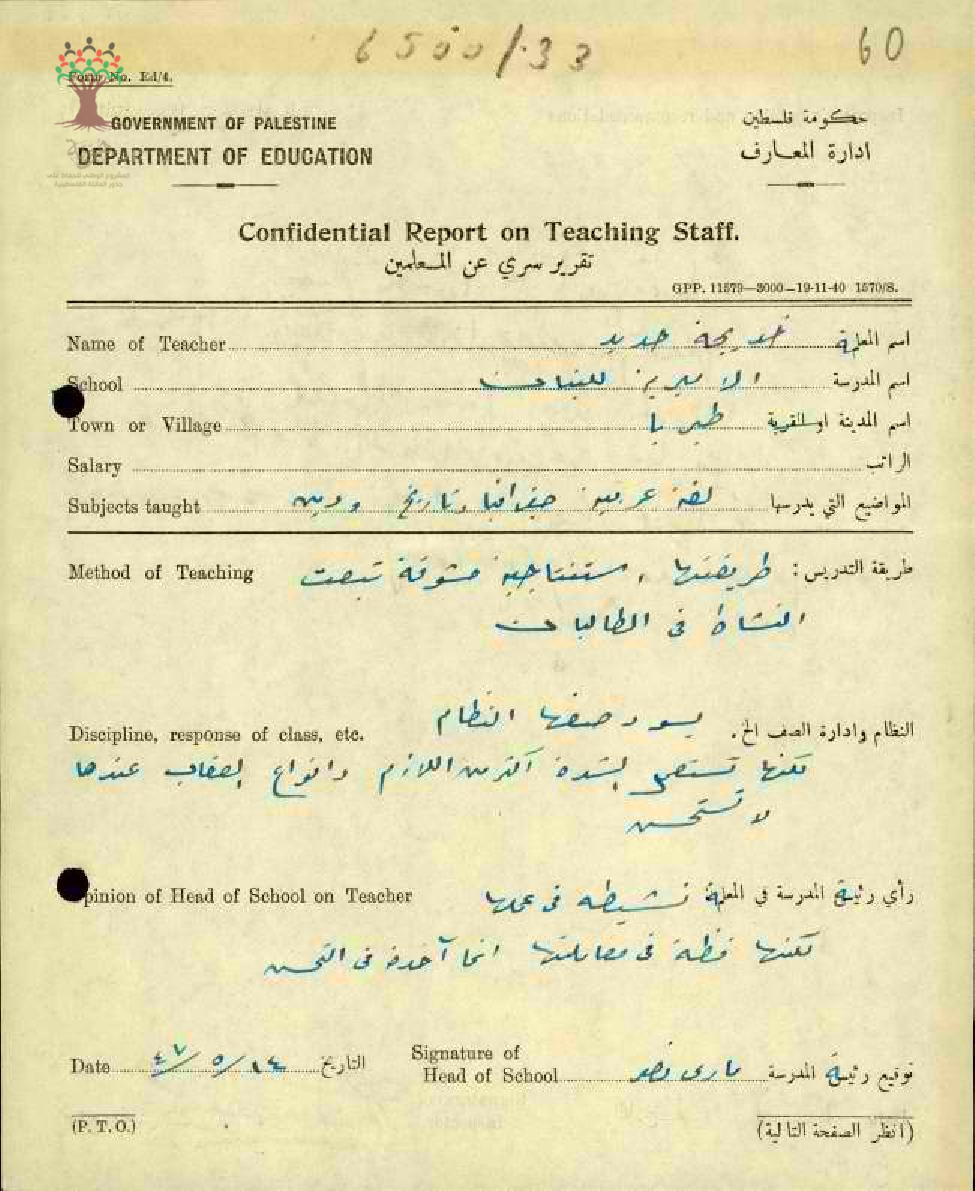 6500/.33
60
Form No. Ed/4.
GOVERNMENT OF PALESTINE
حكومة فلسطين
DEPARTMENT OF EDUCATION
ادارة المعارف
Confidential Report on Teaching Staff.
تقرير سري عن المعلمين
GPP. 11579—3000—19-11-40 1570/S.
Name of Teacher خديجة حديد اسم المعلمة
School الاميرية للبنات اسم المدرسة
Town or Village طبريا اسم المدينة او القرية
Salary الراتب
Subjects taught لغة عربية جغرافيا وتاريخ ودين المواضيع التي يدرسها
Method of Teaching طريقة التدريس: طريقتها استنتاجية مشوقة تبعث
النشاط في الطالبات
Discipline, response of class, etc. النظام وادارة الصف الخ. يسود صفها النظام
لكنها بشدة اكثر من اللازم وانواع العقاب عندها
لا تستحسن
Opinion of Head of School on Teacher رأي رئيسة المدرسة في المعلمة نشيطه في عملها
لكنها فظة في معاملتها انما آخذة في التحسن
Date ١٤/٥/٤٧ التاريخ
Signature of
Head of School ماري توقيع رئيسة المدرسة
(P. T. O.)
(انظر الصفحة التالية)